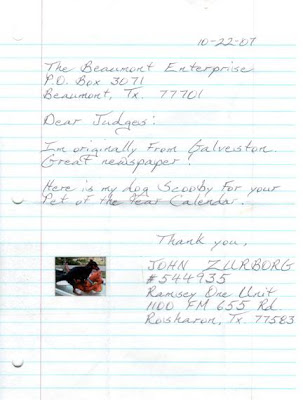 10-22-07
The Beaumont Enterprise
P.O. Box 3071
Beaumont, Tx. 77701
Dear Judges:
I'm originally From Galveston.
Great newspaper!
Here is my dog Scooby For your
Pet of the Year Calendar.
Thank you,
JOHN ZURBORG
#544935
Ramsey One Unit
1100 FM 655 Rd
Rosharon, Tx 77583